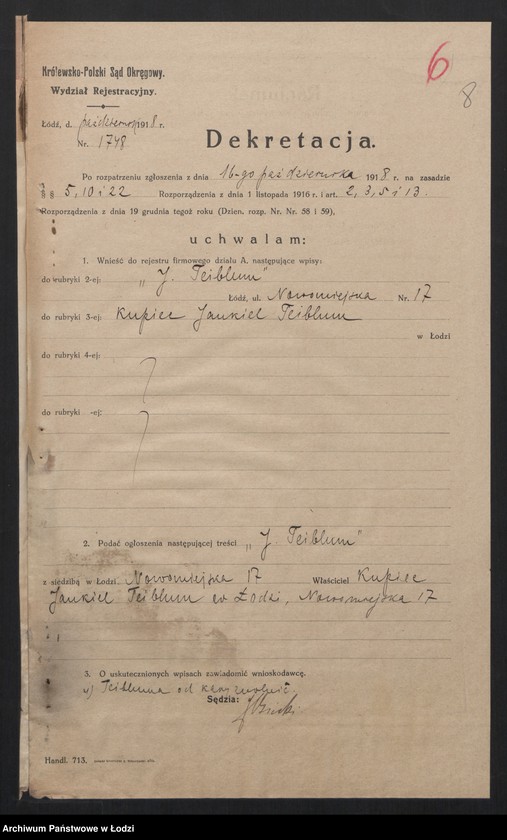 6
8
Królewsko-Polski Sąd Okręgowy.
Wydział Rejestracyjny.
Łódź, d. października 1918 r.
Nr. 1748
Dekretacja.
Po rozpatrzeniu zgłoszenia z dnia 16-go października 1918 r. na zasadzie
§ § 5, 10 i 22 Rozporządzenia z dnia 1 listopada 1916 r. i art. 2, 3, 5 i 13.
Rozporządzenia z dnia 19 grudnia tegoż roku (Dzien. rozp. Nr. Nr. 58 i 59),
uchwalam:
1. Wnieść do rejestru firmowego działu A, następujące wpisy:
do rubryki 2-ej: „J. Teiblum"
Łódź, ul. Nowomiejska Nr. 17
do rubryki 3-ej: Kupiec Jankiel Teiblum
w Łodzi
do rubryki 4-ej:
do rubryki -ej:
2. Podać ogłoszenia następującej treści „J. Teiblum"
z siedzibą w Łodzi Nowomiejska 17 Właściciel Kupiec
Jankiel Teiblum w Łodzi, Nowomiejska 17
3. O uskutecznionych wpisach zawiadomić wnioskodawcę.
Teibluma od
Sędzia:
Handl. 713.
Archiwum Państwowe w Łodzi